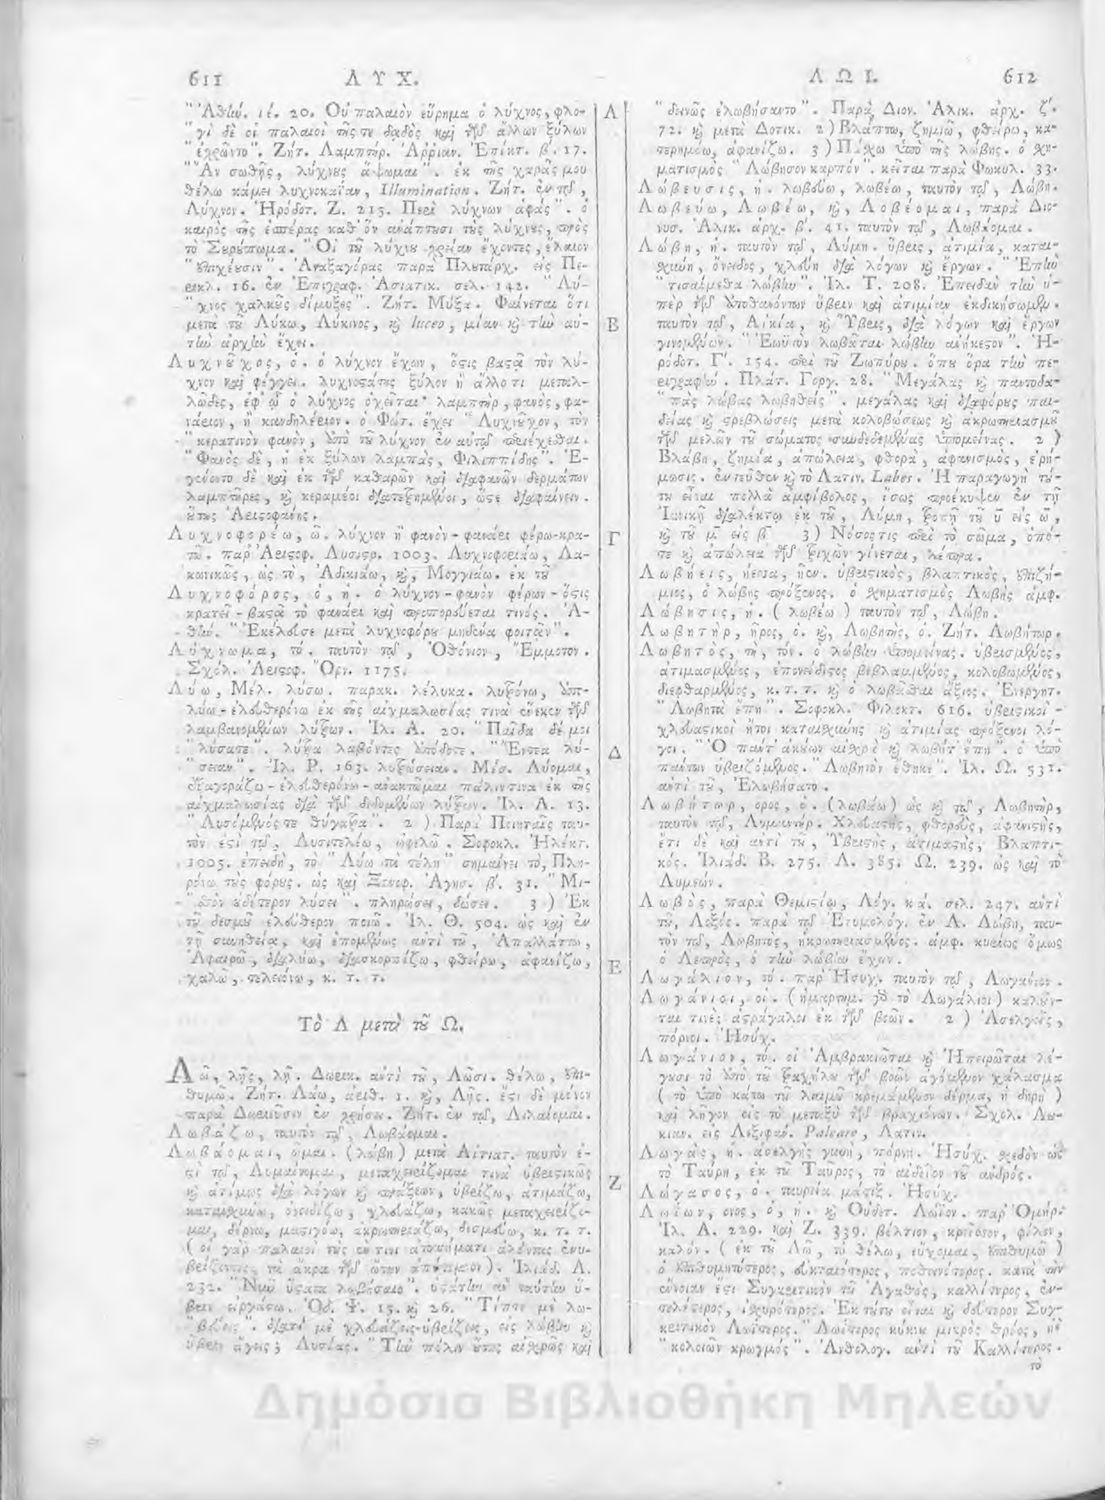 611 Λ Υ Χ.
"Ἀθλω. ιέ. 20. Οὐ παλαιὸν εὕρημα ὁ λύχνος, φλο-
"γὶ δὲ οἱ παλαιοὶ τῆς τε δαδὸς καὶ τῶν ἄλλων ξύλων
"ἐχρῶντο". Ζήτ. Λαμπτήρ. Ἀρριαν. Ἐπίκτ. β'. 17.
θέλω κάμει λυχνοκαΐαν, Illumination. Ζήτ. ἐν τῷ,
Λύχνον. Ἡρόδοτ. Ζ. 215. Περὶ λύχνων ἁφάς". ὁ
καιρὸς τῆς ἑσπέρας καθ' ὃν ἀνάπτουσι τοὺς λύχνους, πρὸς
"ἐπιχέουσιν". Ἀναξαγόρας παρὰ Πλουτάρχ. εἰς Πε-
ρικλ. 16. ἐν Ἐπιγραφ. Ἀσιατικ. σελ. 142. "Λύ-
"χνος χαλκοῦς δίμυξος". Ζήτ. Μύξα. Φαίνεται ὅτι
μετὰ τοῦ Λύκω, Λύκινος, καὶ luceo, μίαν καὶ τὴν αὐ-
τὴν ἀρχὴν ἔχει.
Λυχνοῦχος, ὁ. ὁ λύχνον ἔχων, ὅστις βαστᾷ τὸν λύ-
χνον καὶ φέγγει. λυχνοστάτης ξύλον ἢ ἄλλο τι μεταλ-
λῶδες, ἐφ' ᾧ ὁ λύχνος ὀχεῖται· λαμπτήρ, φανὸς, φα-
νάριον, ἢ κανδηλέριον. ὁ Φώτ. ἔχει "Λυχνοῦχον, τὸν
"κεράτινον φανὸν, ὑπὸ τοῦ λύχνον ἐν αὐτῷ περιέχεσθαι.
"Φανὸς δὲ, ἡ ἐκ ξύλων λαμπὰς, Φιλιππίδης". Ἐ-
γένοντο δὲ καὶ ἐκ τῶν καθαρῶν καὶ διαφανῶν δερμάτων
λαμπτῆρες, καὶ κεραμέοι διατετρημένοι, ὥστε διαφαίνειν.
οὕτως Ἀριστοφάνης.
Λυχνοφορέω, ῶ. λύχνον ἢ φανὸν - φανάρι φέρω-κρα-
τῶ. παρ' Ἀριστοφ. Λυσιστρ. 1003. Λυχνοφορίω, Λα-
κωνικῶς, ὡς τὸ, Ἀδικιάω, καὶ, Μογγιάω. ἐκ τοῦ
Λυχνοφόρος, ὁ, ἡ. ὁ λύχνον - φανὸν φέρων - ὅστις
κρατεῖ - βαστᾷ τὸ φανάρι καὶ προπορεύεται τινός. Ἀ-
θλω. "Ἐκέλευσε μετὰ λυχνοφόρου μηδένα φοιτᾶν".
Λύχνωμα, τό. ταυτὸν τῷ, Ὀθόνιον, Ἔμμοτον.
Σχόλ. Ἀριστοφ. Ὄρν. 1175.
Λύω, Μέλ. λύσω. παρακ. λέλυκα. λυτρόνω, ἀπο-
λύω - ἐλευθερόνω ἐκ τῆς αἰχμαλωσίας τινὰ ἕνεκεν τῶν
λαμβανομένων λύτρων. Ἰλ. Α. 20. "Παῖδα δέ μοι
"λύσατε". λύτρα λαβόντες ἀπόδοτε.
"σειαν". Ἰλ. Ρ. 163. λυτρώσειαν. Μέσ. Λύομαι,
ἐξαγοράζω - ἐλευθερόνω - ἀνακτῶμαι πάλιν τινὰ ἐκ τῆς
αἰχμαλωσίας διὰ τῶν διδομένων λύτρων. Ἰλ. Α. 13.
"Λυσόμενός τε θύγατρα". 2) Παρὰ Ποιηταῖς ταυ-
τόν ἐστι τῷ, Λυσιτελέω, ὠφελῶ. Σοφοκλ. Ἠλέκτ.
1005. ἐπειδὴ, τὸ "Λύω τὰ τέλη" σημαίνει τὸ, Πλη-
ρόνω τοὺς φόρους. ὡς καὶ Ξενοφ. Ἀγησ. β'. 31. "Μι-
"σθὸν οὐδέτερον λύσει". πληρώσει, δώσει. 3) Ἐκ
τοῦ δεσμοῦ ἐλεύθερον ποιῶ. Ἰλ. Θ. 504. ὡς καὶ ἐν
τῇ συνηθείᾳ, καὶ ἑπομένως ἀντὶ τοῦ, Ἀπαλλάττω,
Ἀφαιρῶ, διαλύω, διασκορπίζω, φθείρω, ἀφανίζω,
χαλῶ, τελειόνω, κ. τ. τ.
Τὸ Λ μετὰ τοῦ Ω.
Λῶ, λῇς, λῇ. Δωρικ. ἀντὶ τοῦ, Λῶσι. θέλω, ἐπι-
θυμῶ. Ζήτ. Λάω, ἀριθ. 1. καὶ, Λῇς. ἔστι δὲ μόνον
παρὰ Δωριεῦσιν ἐν χρήσει. Ζήτ. ἐν τῷ, Λιλαίομαι.
Λωβάζω, ταυτὸν τῷ, Λωβάομαι.
Λωβάομαι, ῶμαι. (λώβη) μετὰ Αἰτιατ. ταυτόν ἐ-
στι τῷ, Λυμαίνομαι, μεταχειρίζομαι τινὰ ὑβριστικῶς
καὶ ἀτίμως διὰ λόγων καὶ πράξεων, ὑβρίζω, ἀτιμάζω,
καταισχύνω, ὀνειδίζω, χλευάζω, κακῶς μεταχειρίζο-
μαι, δέρνω, μαστιγόω, ἀκρωτηριάζω, δεσμεύω, κ. τ. τ.
232. "Νῦν ὕστατα λωβήσαιο".
βριν εἰργάσω. Ὀδ. Ψ. 15. καὶ 26. "Τίπτε με λω-
"βεύεις". διατί με χλευάζεις-ὑβρίζεις, εἰς λώβην καὶ
ὕβριν ἄγεις; Λυσίας. "Τὴν πόλιν οὕτως αἰσχρῶς καὶ
Α
Β
Γ
Δ
Ε
Ζ
Λ Ω Ι. 612
"δεινῶς ἐλωβήσαντο". Παρὰ Διον. Ἁλικ. ἀρχ. ζ'.
72. καὶ μετὰ Δοτικ. 2) Βλάπτω, ζημιῶ, φθείρω, κα-
τερημόω, ἀφανίζω. 3) Πάσχω ὑπὸ τῆς λώβης. ὁ χη-
ματισμὸς "Λώβησον καρπόν". κεῖται παρὰ Φωκυλ. 33.
Λώβευσις, ἡ. λωβεύω, λωβέω, ταυτὸν τῷ, Λώβη.
Λωβεύω, Λωβέω, καὶ, Λοβέομαι, παρὰ Διο-
νυσ. Ἁλικ. ἀρχ. β'. 41. ταυτὸν τῷ, Λωβάομαι.
Λώβη, ἡ. ταυτὸν τῷ, Λύμη. ὕβρις, ἀτιμία, καται-
σχύνη, ὄνειδος, χλεύη διὰ λόγων καὶ ἔργων. "Ἐπὴν
"τισαίμεθα λώβην". Ἰλ. Τ. 208. Ἐπειδὰν τὴν ὑ-
πὲρ τῶν ἀποθανόντων ὕβριν καὶ ἀτιμίαν ἐκδικήσωμεν.
ταυτὸν τῷ, Αἰκία, καὶ Ὕβρις, διὰ λόγων καὶ ἔργων
γινομένων. "Ἑωυτὸν λωβᾶται λώβην ἀνήκεστον". Ἡ-
ρόδοτ. Γ'. 154. περὶ τοῦ Ζωπύρου. ὅπου ὅρα τὴν πε-
ριγραφήν. Πλάτ. Γοργ. 28. "Μεγάλας καὶ παντοδα-
"πὰς λώβας λωβηθείς". μεγάλας καὶ διαφόρους παι-
δείας καὶ στρεβλώσεις μετὰ κολοβώσεως καὶ ἀκρωτηριασμοῦ
τῶν μελῶν τοῦ σώματος συνδεδεμένας ὑπομείνας. 2)
Βλάβη, ζημία, ἀπώλεια, φθορά, ἀφανισμὸς, ἐρή-
μωσις. ἐντεῦθεν καὶ τὸ Λατιν. Labes. Ἡ παραγωγὴ τού-
του εἶναι πολλὰ ἀμφίβολος, ἴσως προέκυψεν ἐν τῇ
Ἰωνικῇ διαλέκτῳ ἐκ τοῦ, Λύμη, τροπῇ τοῦ ῡ εἰς ω̄,
καὶ τοῦ μ̄ εἰς β̄. 3) Νόσος τις περὶ τὸ σῶμα, ὁπό-
τε καὶ ἀπώλεια τῶν τριχῶν γίνεται, λέπρα.
Λωβήεις, ήεσσα, ῆεν. ὑβριστικὸς, βλαπτικὸς, ἐπιζή-
μιος, ὁ λώβης πρόξενος. ὁ σχηματισμὸς Λωβὴς ἀμφ.
Λώβησις, ἡ. (λωβέω) ταυτὸν τῷ, Λώβη.
Λωβητὴρ, ῆρος, ὁ. καὶ, Λωβητὴς, ὁ. Ζήτ. Λωβήτωρ.
Λωβητὸς, τὴ, τόν. ὁ λώβην ὑπομείνας. ὑβρισμένος,
ἀτιμασμένος, ἐπονείδιστος βεβλαμμένος, κολοβωμένος,
διεφθαρμένος, κ. τ. τ. καὶ ὁ λωβᾶσθαι ἄξιος. Ἐνεργητ.
"Λωβητὰ ἔπη". Σοφοκλ. Φιλοκτ. 616. ὑβριστικοὶ -
χλευαστικοὶ ἤτοι καταισχύνης καὶ ἀτιμίας πρόξενοι λό-
γοι. "Ὁ πάντ' ἀκούων αἰσχρὰ καὶ λωβήτ' ἔπη". ὁ ὑπὸ
πάντων ὑβριζόμενος. "Λωβητὸν ἔθηκε". Ἰλ. Ω. 531.
ἀντὶ τοῦ, Ἐλωβήσατο.
Λωβήτωρ, ορος, ὁ. (λωβάω) ὡς καὶ τῷ, Λωβητὴρ,
ταυτὸν τῷ, Λυμαντὴρ. Χλευαστὴς, φθορεὺς, ἀφανιστὴς,
ἔτι δὲ καὶ ἀντὶ τοῦ, Ὑβριστὴς, ἀτιμαστὴς, Βλαπτι-
κός. Ἰλιάδ. Β. 275. Λ. 385. Ω. 239. ὡς καὶ τὸ
Λυμεών.
Λωβὸς, παρὰ Θεμιστίῳ, Λόγ. κά. σελ. 247. ἀντὶ
τοῦ, Λοξός. παρὰ τῷ Ἐτυμολόγ. ἐν Λ. Λώβη, ταυ-
τὸν τῷ, Λωβητὸς, ἠκρωτηριασμένος. ἀμφ. κυρίως ὅμως
ὁ Λεπρὸς, ὁ τὴν λώβην ἔχων.
Λωγάλιον, τό. παρ' Ἡσυχ. ταυτὸν τῷ, Λωγάνιον.
Λωγάνιοι, οἱ. (ἡμαρτημ. ἀπὸ τὸ Λωγάλιοι) καλοῦν-
ται τινὲς ἀστράγαλοι ἐκ τῶν βοῶν. 2) Ἀσελγεῖς,
πόρνοι. Ἡσύχ.
Λωγάνιον, τό. οἱ Ἀμβρακιῶται καὶ Ἠπειρῶται λέ-
γουσι τὸ ὑπὸ τοῦ τραχήλου τῶν βοῶν ἀγόμενον χάλασμα
(τὸ ὑπὸ κάτω τοῦ λαιμοῦ κρεμάμενον δέρμα, ἢ δηρὴ)
καὶ λῆγον εἰς τὸ μεταξὺ τῶν βραχιόνων. Σχόλ. Λυ-
κιαν. εἰς Λεξιφάν. Paleare, Λατιν.
Λωγὰς, ἡ. ἀσελγὴς γυνὴ, πόρνη. Ἡσύχ. σχεδὸν ὡς
τὸ Ταύρη, ἐκ τοῦ Ταῦρος, τὸ αἰδοῖον τοῦ ἀνδρός.
Λώγασος, ὁ. ταυρεία μάστιξ. Ἡσύχ.
Λωΐων, ονος, ὁ, ἡ. καὶ Οὐδέτ. Λώϊον. παρ' Ὁμήρ.
Ἰλ. Α. 229. καὶ Ζ. 339. βέλτιον, κρεῖττον, φίλον,
καλόν. (ἐκ τοῦ Λῶ, τὸ θέλω, εὔχομαι, ἐπιθυμῶ)
ὁ ἐπιθυμητότερος, εὐκταιότερος, ποθεινότερος. κατὰ τὴν
ἔννοιαν ἔστι Συγκριτικὸν τοῦ Ἀγαθὸς, καλλίτερος, ἐν-
τελέστερος, ἰσχυρότερος. Ἐκ τούτου εἶναι καὶ δεύτερον Συγ-
κριτικὸν Λωΐτερος. "Λωΐτερος κύκνου μικρὸς θρόος, ἠὲ
"κολοιῶν κρωγμός". Ἀνθολογ. ἀντὶ τοῦ Καλλίτερος.
τὸ
Δημόσια Βιβλιοθήκη Μηλεών